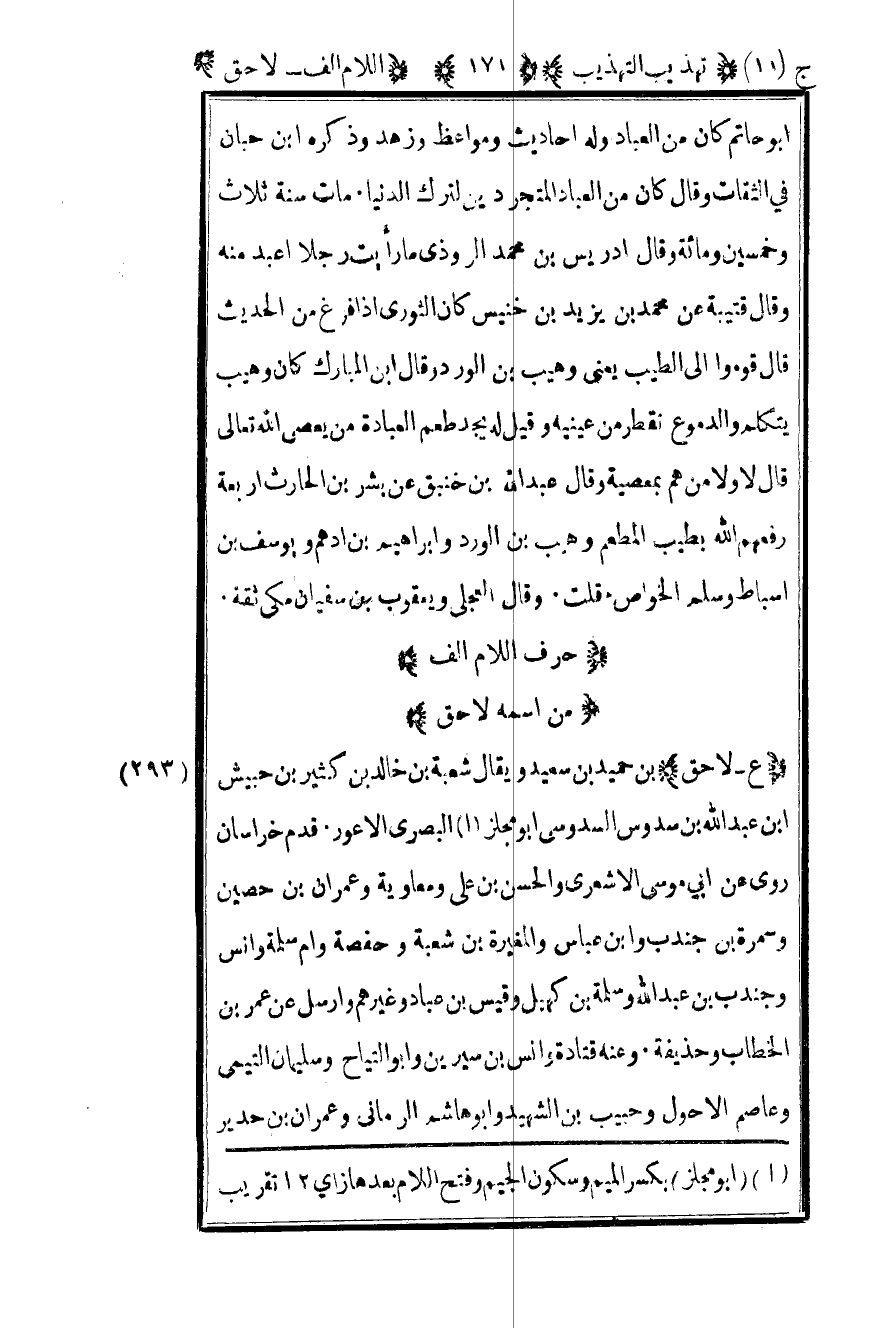 ج (١١) ﴿ تهذيب التهذيب ﴾ ﴿ ١٧١ ﴾ ﴿ اللام الف ـ لاحق ﴾
ابو حاتم كان من العباد وله احاديث ومواعظ وزهد وذكره ابن حبان
في الثقات وقال كان من العباد المتجردين لترك الدنيا ٠ مات سنة ثلاث
وخمسين ومائة وقال ادريس بن محمد الروذى ما رأيت رجلا اعبد منه
وقال قتيبة عن محمد بن يزيد بن خنيس كان الثورى اذا فرغ من الحديث
قال قوموا الى الطيب يعنى وهيب بن الورد وقال ابن المبارك كان وهيب
يتكلم والدموع تقطر من عينيه وقيل له يجد طعم العبادة من يعصى الله تعالى
قال لا ولا من هم بمعصية وقال عبدالله بن خنبق عن بشر بن الحارث اربعة
رفعهم الله بطيب المطعم وهيب بن الورد وابراهيم بن ادهم ويوسف بن
اسباط وسلم الخواص ٠ قلت ٠ وقال العجلى ويعقوب بن سفيان مكى ثقة ٠
﴿ حرف اللام الف ﴾
﴿ من اسمه لاحق ﴾
﴿ ع ـ لاحق ﴾ بن حميد بن سعيد ويقال شعبة بن خالد بن كثير بن حبيش (٢٩٣)
ابن عبدالله بن سدوس السدوسى ابو مجلز (١) البصرى الاعور ٠ قدم خراسان
روى عن ابي موسى الاشعرى والحسن بن على ومعاوية وعمران بن حصين
وسمرة بن جندب وابن عباس والمغيرة بن شعبة و حفصة وام سلمة وانس
وجندب بن عبدالله وسلمة بن كهيل وقيس بن عباد وغيرهم وارسل عن عمر بن
الخطاب وحذيفة ٠ وعنه قتادة وانس بن سيرين وابو التياح وسليمان التيمى
وعاصم الاحول وحبيب بن الشهيد وابو هاشم الرمانى وعمران بن حدير
(١) (ابو مجلز) بكسر الميم وسكون الجيم وفتح اللام بعدها زاي ١٢ تقريب